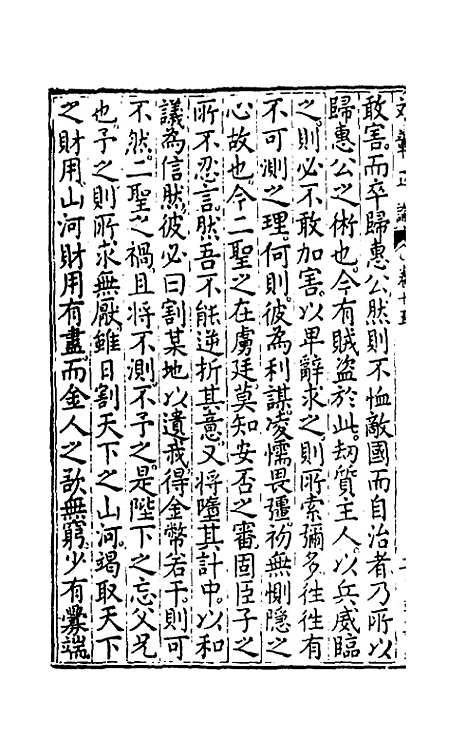 敢害而卒歸惠公然則不恤敵國而自治者乃所以
歸惠公之術也今有賊盜於此劫質主人以兵威臨
之則必不敢加害以卑辭求之則所索彌多往往有
不可測之理何則彼為利謀凌懦畏彊初無惻隱之
心故也今二聖之在虜廷莫知安否之審固臣子之
所不忍言然吾不能逆折其意又將墮其計中以和
議為信然彼必曰割某地以遺我得金幣若干則可
不然二聖之禍且將不測不予之是陛下之忘父兄
也予之則所求無厭雖日割天下之山河竭取天下
之財用山河財用有盡而金人之欲無窮少有釁端